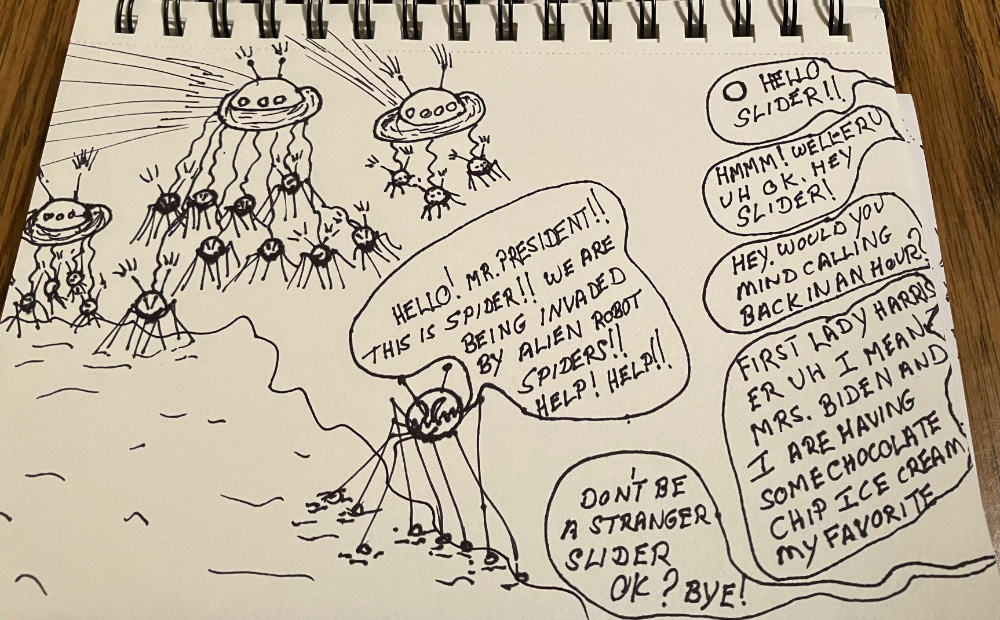 HELLO! MR. PRESIDENT!!
THIS IS SPIDER!! WE ARE
BEING INVADED
BY ALIEN ROBOT
SPIDERS!!
HELP! HELP!!
O HELLO
SLIDER!!
HMMM! WELLERU
UH OK. HEY
SLIDER!
HEY. WOULD YOU
MIND CALLING
BACK IN AN HOUR?
FIRST LADY HARRIS
ER UH I MEAN
MRS. BIDEN AND
I ARE HAVING
SOME CHOCOLATE
CHIP ICE CREAM
MY FAVORITE
DON'T BE
A STRANGER
SLIDER
OK? BYE!